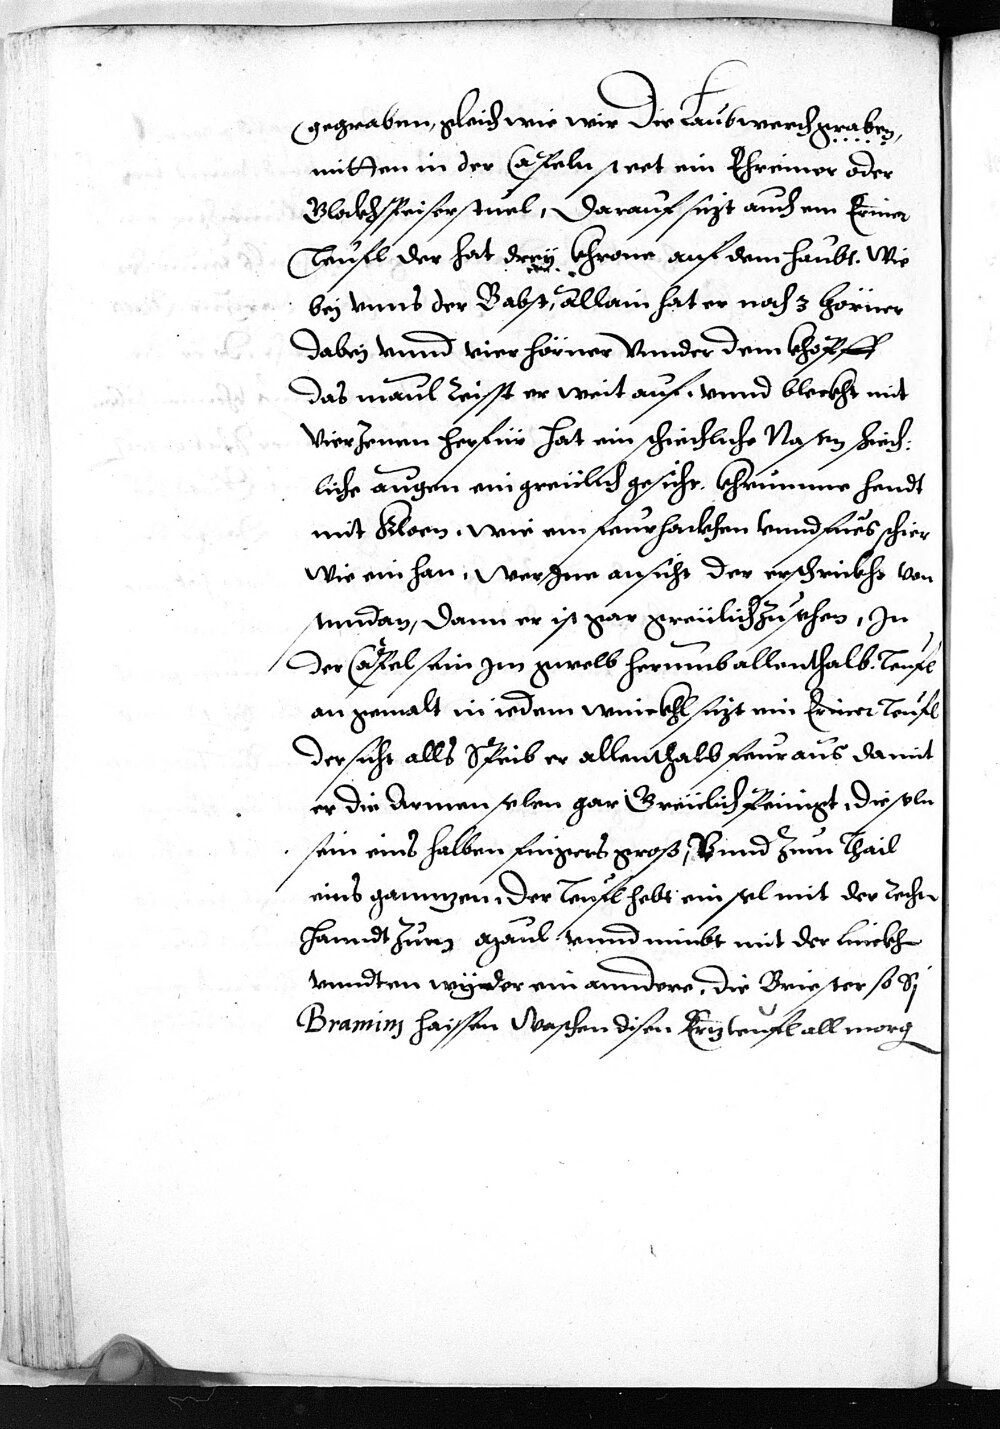 gegraben, gleich wie wir die Laubwerch graben,
mitten in der Capeln stet ein Ehreiner oder
Glockhspeiser stuel, darauf sizt auch ein Eriner
Teufl der hat drey khrone auf dem haubt. Wie
bej vnns der Babst, allain hat er noch 3 hörner
dabej vnnd vier hörner vnnder dem khopff
das maul reisst er weit auf, vnnd bleckht mit
vier Zenen herfür hat ein schiechliche Nasen schiech:
liche augen ein greülich gesicht. khrumme hendt
mit kloen. wie ein feurhackhen vnnd fües schier
wie ein han, wer Ine ansicht der erschrickht von
stundan, dann er ist gar greülich zu sehen, In
der Capel sein Im gwelb herumb allenthalb. Teufl
an gemalt in iedem winckhl sizt ein Eriner Teufl
der sicht alls Speib er allenthalb feur aus damit
er die Armen selen gar Greülich Peinigt, die seln
sein eins halben fingers gross, Vnnd zum Thail
eins ganntzen, der Teufl hebt ein sel mit der rechn
hanndt zum maul vnnd nimbt mit der linckh
vnndten wyder ein anndere, die Briester so Sj
Bramini haissen Waschen disen Erzteufl all morg